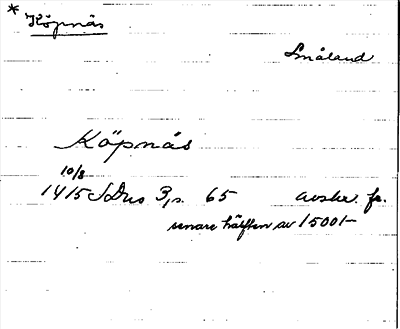 * Köpnäs
Småland
Köpnäs
10/8
1415 SoDns 3, s. 65 avskr. fr.
senare hälften av 1500t-